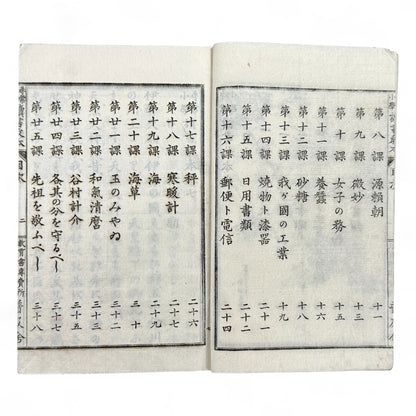 第八課 源頼朝 十一
第九課 微妙 十三
第十課 女子の務 十五
第十一課 養蚕 十六
第十二課 砂糖 十八
第十三課 我ガ國の工業 十九
第十四課 焼物ト漆器 二十一
第十五課 日用書類 二十三
第十六課 郵便ト電信 二十四
第十七課 秤 二十六
第十八課 寒暖計 二十七
第十九課 海 二十九
第二十課 海草 三十
第廿一課 玉のみやゐ 三十二
第廿二課 和氣清麿 三十三
第廿三課 谷村計介
第廿四課 各其の分を守るべし 三十六
第廿五課 先祖を敬ふべし 三十八
目次 二 教育書專賣所 普及舍